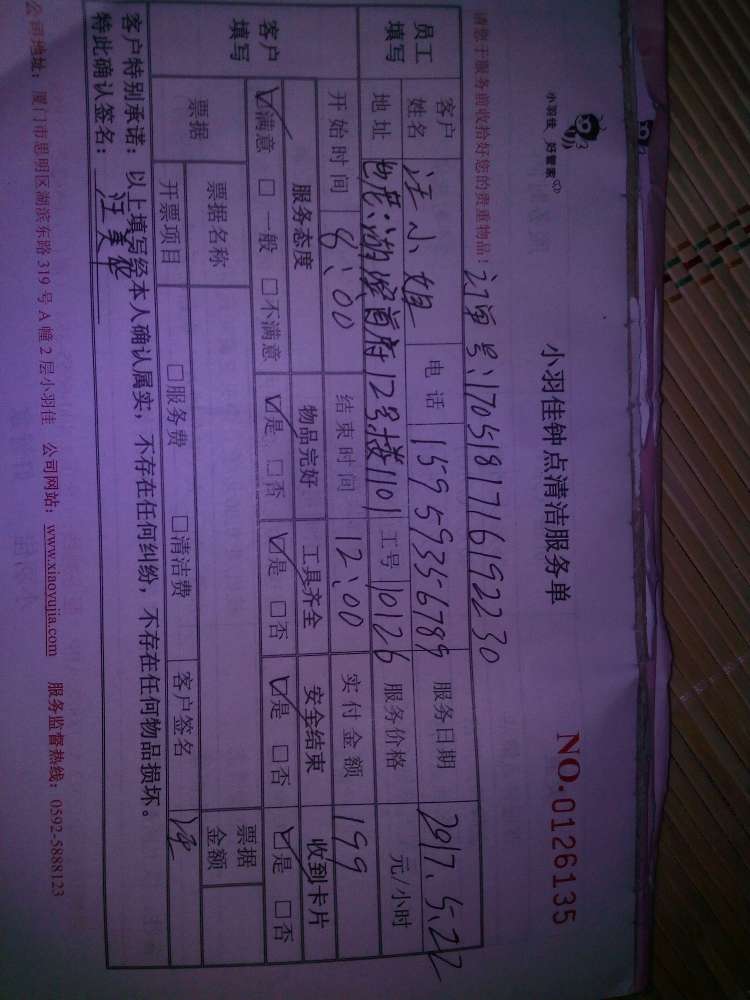 小羽佳 好管家
小羽佳钟点清洁服务单
NO.0126135
请您于服务前收拾好您的贵重物品！ 订单号：170518171619230
员工填写 客户姓名 汪小姐 电话 15959356789 服务日期 2017.5.22
地址 湖滨首府12号楼1101 工号 10126 服务价格 元/小时
开始时间 8：00 结束时间 12：00 实付金额 199
客户填写 服务态度 物品完好 工具齐全 安全结束 收到卡片
☑满意 □一般 □不满意 ☑是 □否 ☑是 □否 ☑是 □否 ☑是 □否
票据 票据名称 票据金额
开票项目 □服务费 □清洁费 客户签名 汪
客户特别承诺：以上填写经本人确认属实，不存在任何纠纷，不存在任何物品损坏。
特此确认签名： 汪美
公司地址：厦门市思明区湖滨东路319号A幢2层小羽佳 公司网站：www.xiaoyujia.com 服务监督热线：0592-5888123